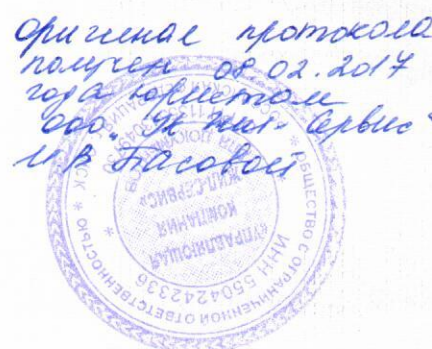 оригинал протокола
получен 08.02.2017
года юристом
ООО "УК Жил-Сервис"
И.В. Пасовой
ОБЩЕСТВО С ОГРАНИЧЕННОЙ ОТВЕТСТВЕННОСТЬЮ
ИНН 5504242336
"УПРАВЛЯЮЩАЯ
КОМПАНИЯ
ЖИЛ-СЕРВИС"